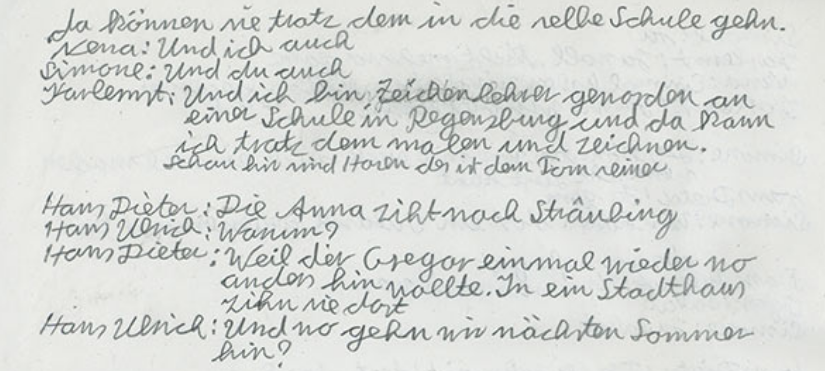 da können sie trotz dem in die selbe Schule gehn.
Xena: Und ich auch
Simone: Und du auch
Karlernst: Und ich bin Zeichenlehrer geworden an
einer Schule in Regensburg und da kann
ich trotz dem malen und zeichnen.
Schau hin sind Hasen der ist dem Tom seiner
Hans Dieter: Die Anna ziht nach Straubing
Hans Ulrich: Warum?
Hans Dieter: Weil der Gregor einmal wieder wo
anders hin wollte. In ein Stadthaus
zihn sie dort
Hans Ulrich: Und wo gehn wir nächsten Sommer
hin?